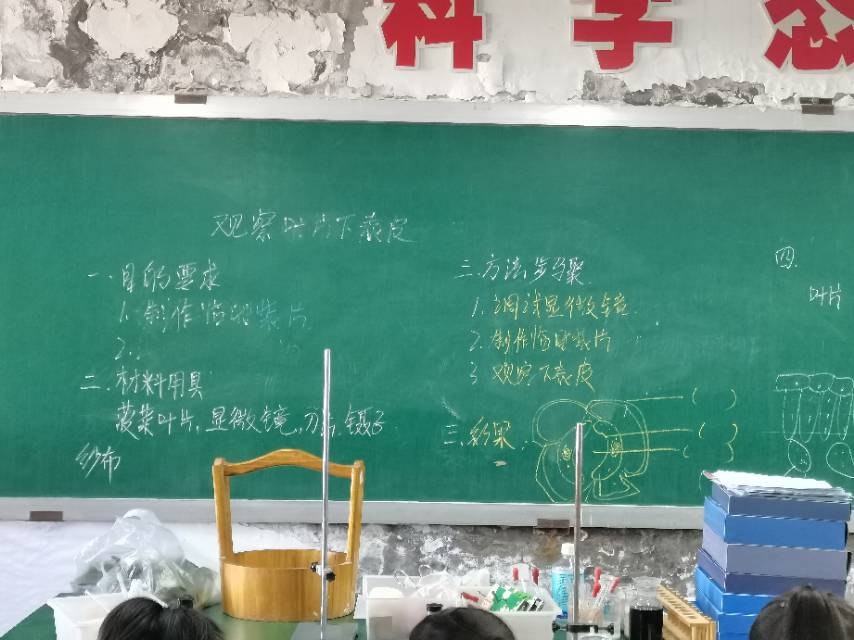 科学态
观察叶片下表皮
一、目的要求
1. 制作临时装片
2.
二、材料用具
菠菜叶片,显微镜,刀片,镊子
纱布
三、方法步骤
1. 调试显微镜
2. 制作临时装片
3 观察下表皮
三、结果
( )
( )
四.
叶片